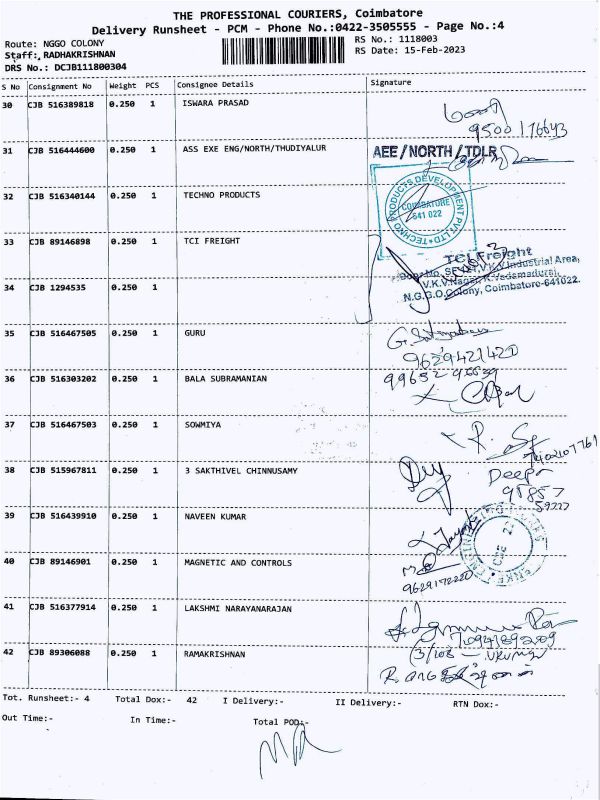 THE PROFESSIONAL COURIERS, Coimbatore
Delivery Runsheet - PCM - Phone No.:0422-3505555 - Page No.:4
Route: NGGO COLONY
RS No.: 1118003
Staff: RADHAKRISHNAN
RS Date: 15-Feb-2023
DRS No.: DCJB111800304
S No Consignment No Weight PCS Consignee Details Signature
30 CJB 516389818 0.250 1 ISWARA PRASAD
9500176643
31 CJB 516444600 0.250 1 ASS EXE ENG/NORTH/THUDIYALUR AEE/NORTH/TDLR
32 CJB 516340144 0.250 1 TECHNO PRODUCTS
TECHNO PRODUCTS DEVELOPMENT PVT LTD
COIMBATORE
641 022
33 CJB 89146898 0.250 1 TCI FREIGHT
TCI Freight
V.K.V.Industrial Area,
V.K.V.Nagar, K.Vadamadurai,
N.G.G.O.Colony, Coimbatore-641022.
34 CJB 1294535 0.250 1
35 CJB 516467505 0.250 1 GURU
9629421420
36 CJB 516303202 0.250 1 BALA SUBRAMANIAN
37 CJB 516467503 0.250 1 SOWMIYA
38 CJB 515967811 0.250 1 3 SAKTHIVEL CHINNUSAMY
Deepa
95857
59227
39 CJB 516439910 0.250 1 NAVEEN KUMAR
40 CJB 89146901 0.250 1 MAGNETIC AND CONTROLS
9629172220
41 CJB 516377914 0.250 1 LAKSHMI NARAYANARAJAN
42 CJB 89306088 0.250 1 RAMAKRISHNAN
Tot. Runsheet:- 4 Total Dox:- 42 I Delivery:- II Delivery:- RTN Dox:-
Out Time:- In Time:- Total POD:-